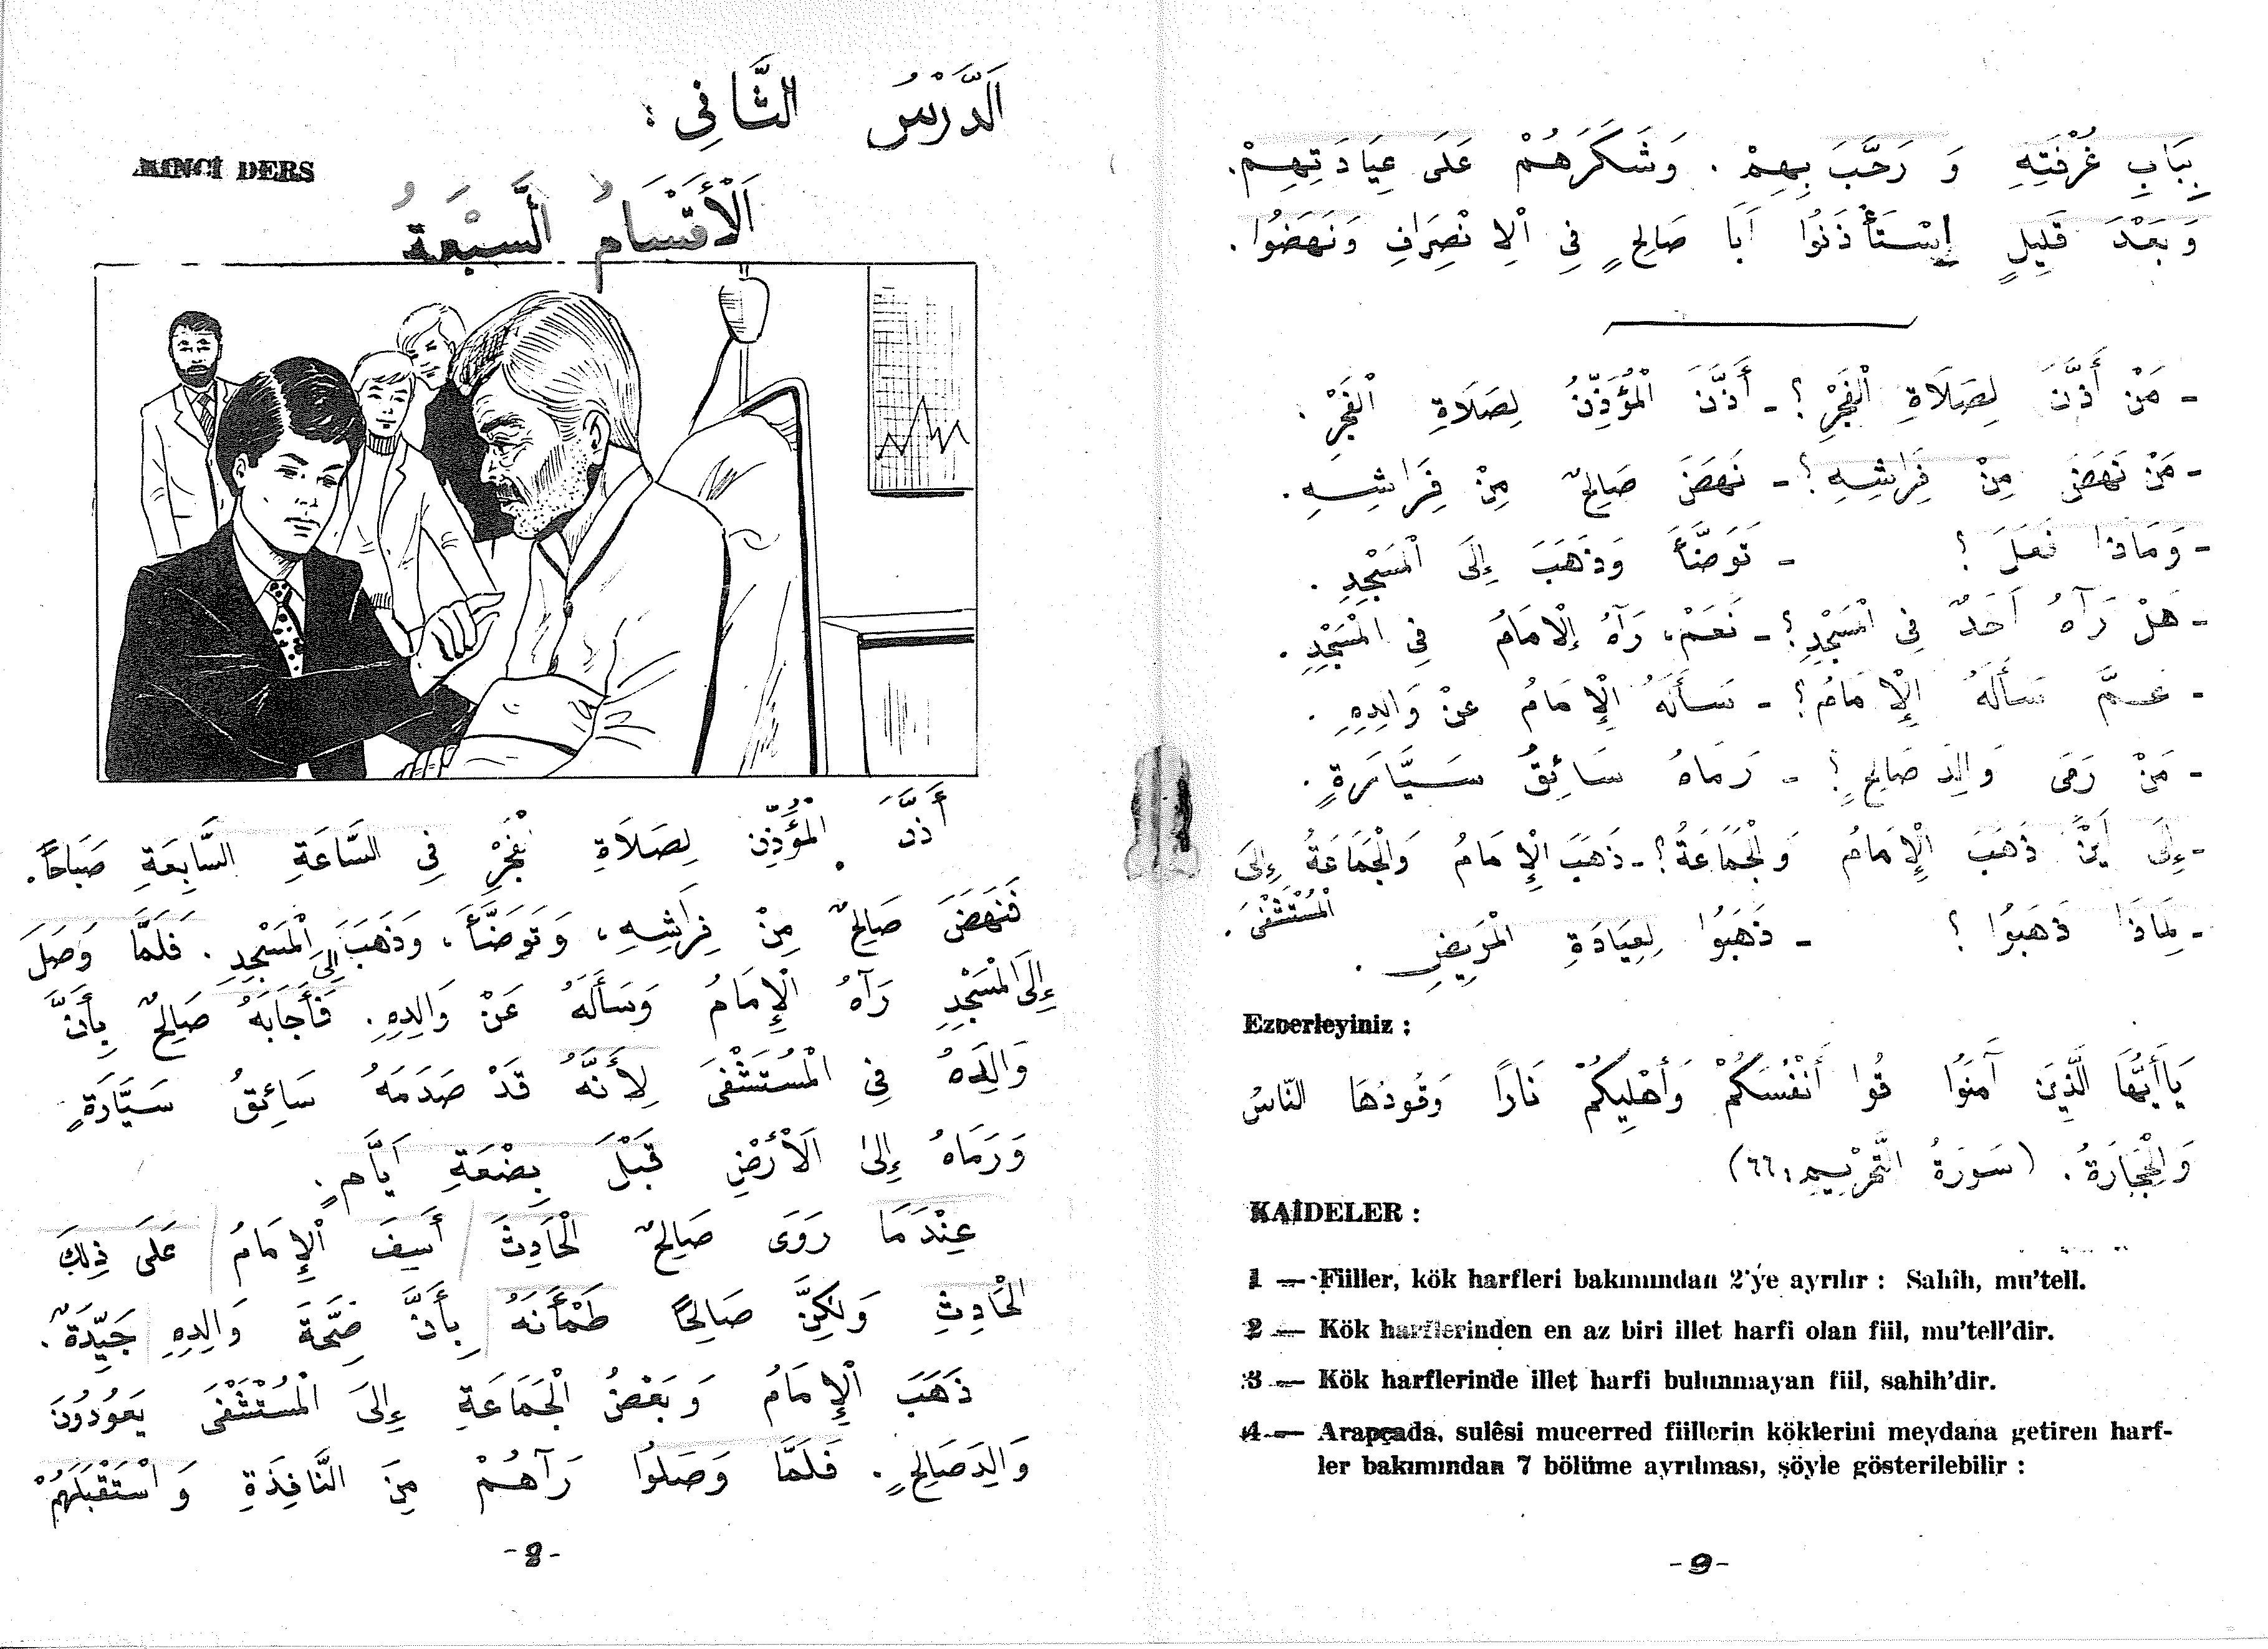 اَلدَّرْسُ الثَّانِي :
İKİNCİ DERS
اَلْأَقْسَامُ السَّبْعَةُ
أَذَّنَ الْمُؤَذِّنُ لِصَلَاةِ الْفَجْرِ فِي السَّاعَةِ السَّابِعَةِ صَبَاحًا.
فَنَهَضَ صَالِحٌ مِنْ فِرَاشِهِ، وَتَوَضَّأَ، وَذَهَبَ إِلَى الْمَسْجِدِ. فَلَمَّا وَصَلَ
إِلَى الْمَسْجِدِ رَآهُ الْإِمَامُ وَسَأَلَهُ عَنْ وَالِدِهِ. فَأَجَابَهُ صَالِحٌ بِأَنَّ
وَالِدَهُ فِي الْمُسْتَشْفَى لِأَنَّهُ قَدْ صَدَمَهُ سَائِقُ سَيَّارَةٍ
وَرَمَاهُ إِلَى اَلْأَرْضِ قَبْلَ بِضْعَةِ اَيَّامٍ.
عِنْدَمَا رَوَى صَالِحٌ الْحَادِثَ أَسِفَ الْإِمَامُ عَلَى ذٰلِكَ
الْحَادِثِ وَلٰكِنَّ صَالِحًا طَمْأَنَهُ بِأَنَّ صِحَّةَ وَالِدِهِ جَيِّدَةٌ.
ذَهَبَ الْإِمَامُ وَبَعْضُ الْجَمَاعَةِ إِلَى الْمُسْتَشْفَى يَعُودُونَ
وَالِدَ صَالِحٍ. فَلَمَّا وَصَلُوا رَآهُمْ مِنَ النَّافِذَةِ وَاسْتَقْبَلَهُمْ
-8-
بِبَابِ غُرْفَتِهِ وَرَحَّبَ بِهِمْ. وَشَكَرَهُمْ عَلَى عِيَادَتِهِمْ.
وَبَعْدَ قَلِيلٍ إِسْتَأْذَنُوا اَبَا صَالِحٍ فِي الِانْصِرَافِ وَنَهَضُوا.
- مَنْ أَذَّنَ لِصَلَاةِ الْفَجْرِ؟ - أَذَّنَ الْمُؤَذِّنُ لِصَلَاةِ الْفَجْرِ.
- مَنْ نَهَضَ مِنْ فِرَاشِهِ؟ - نَهَضَ صَالِحٌ مِنْ فِرَاشِهِ.
- وَمَاذَا فَعَلَ؟ - تَوَضَّأَ وَذَهَبَ إِلَى الْمَسْجِدِ.
- هَلْ رَآهُ اَحَدٌ فِي الْمَسْجِدِ؟ - نَعَمْ، رَآهُ الْإِمَامُ فِي الْمَسْجِدِ.
- عَمَّ سَأَلَهُ الْإِمَامُ؟ - سَأَلَهُ الْإِمَامُ عَنْ وَالِدِهِ.
- مَنْ رَمَى وَالِدَ صَالِحٍ؟ - رَمَاهُ سَائِقُ سَيَّارَةٍ.
- إِلَى اَيْنَ ذَهَبَ الْإِمَامُ وَالْجَمَاعَةُ؟ - ذَهَبَ الْإِمَامُ وَالْجَمَاعَةُ إِلَى
الْمُسْتَشْفَى.
- لِمَاذَا ذَهَبُوا؟ - ذَهَبُوا لِعِيَادَةِ الْمَرِيضِ.
Ezberleyiniz :
يَاأَيُّهَا الَّذِينَ آمَنُوا قُوا أَنْفُسَكُمْ وَأَهْلِيكُمْ نَارًا وَقُودُهَا النَّاسُ
وَالْحِجَارَةُ. (سَورَةُ التَّحْرِيمِ: ٦٦)
KAİDELER :
1 — Fiiller, kök harfleri bakımından 2'ye ayrılır : Sahîh, mu'tell.
2 — Kök harflerinden en az biri illet harfi olan fiil, mu'tell'dir.
3 — Kök harflerinde illet harfi bulunmayan fiil, sahih'dir.
4 — Arapçada, sulêsi mucerred fiillerin köklerini meydana getiren harf-
ler bakımından 7 bölüme ayrılması, şöyle gösterilebilir :
-9-